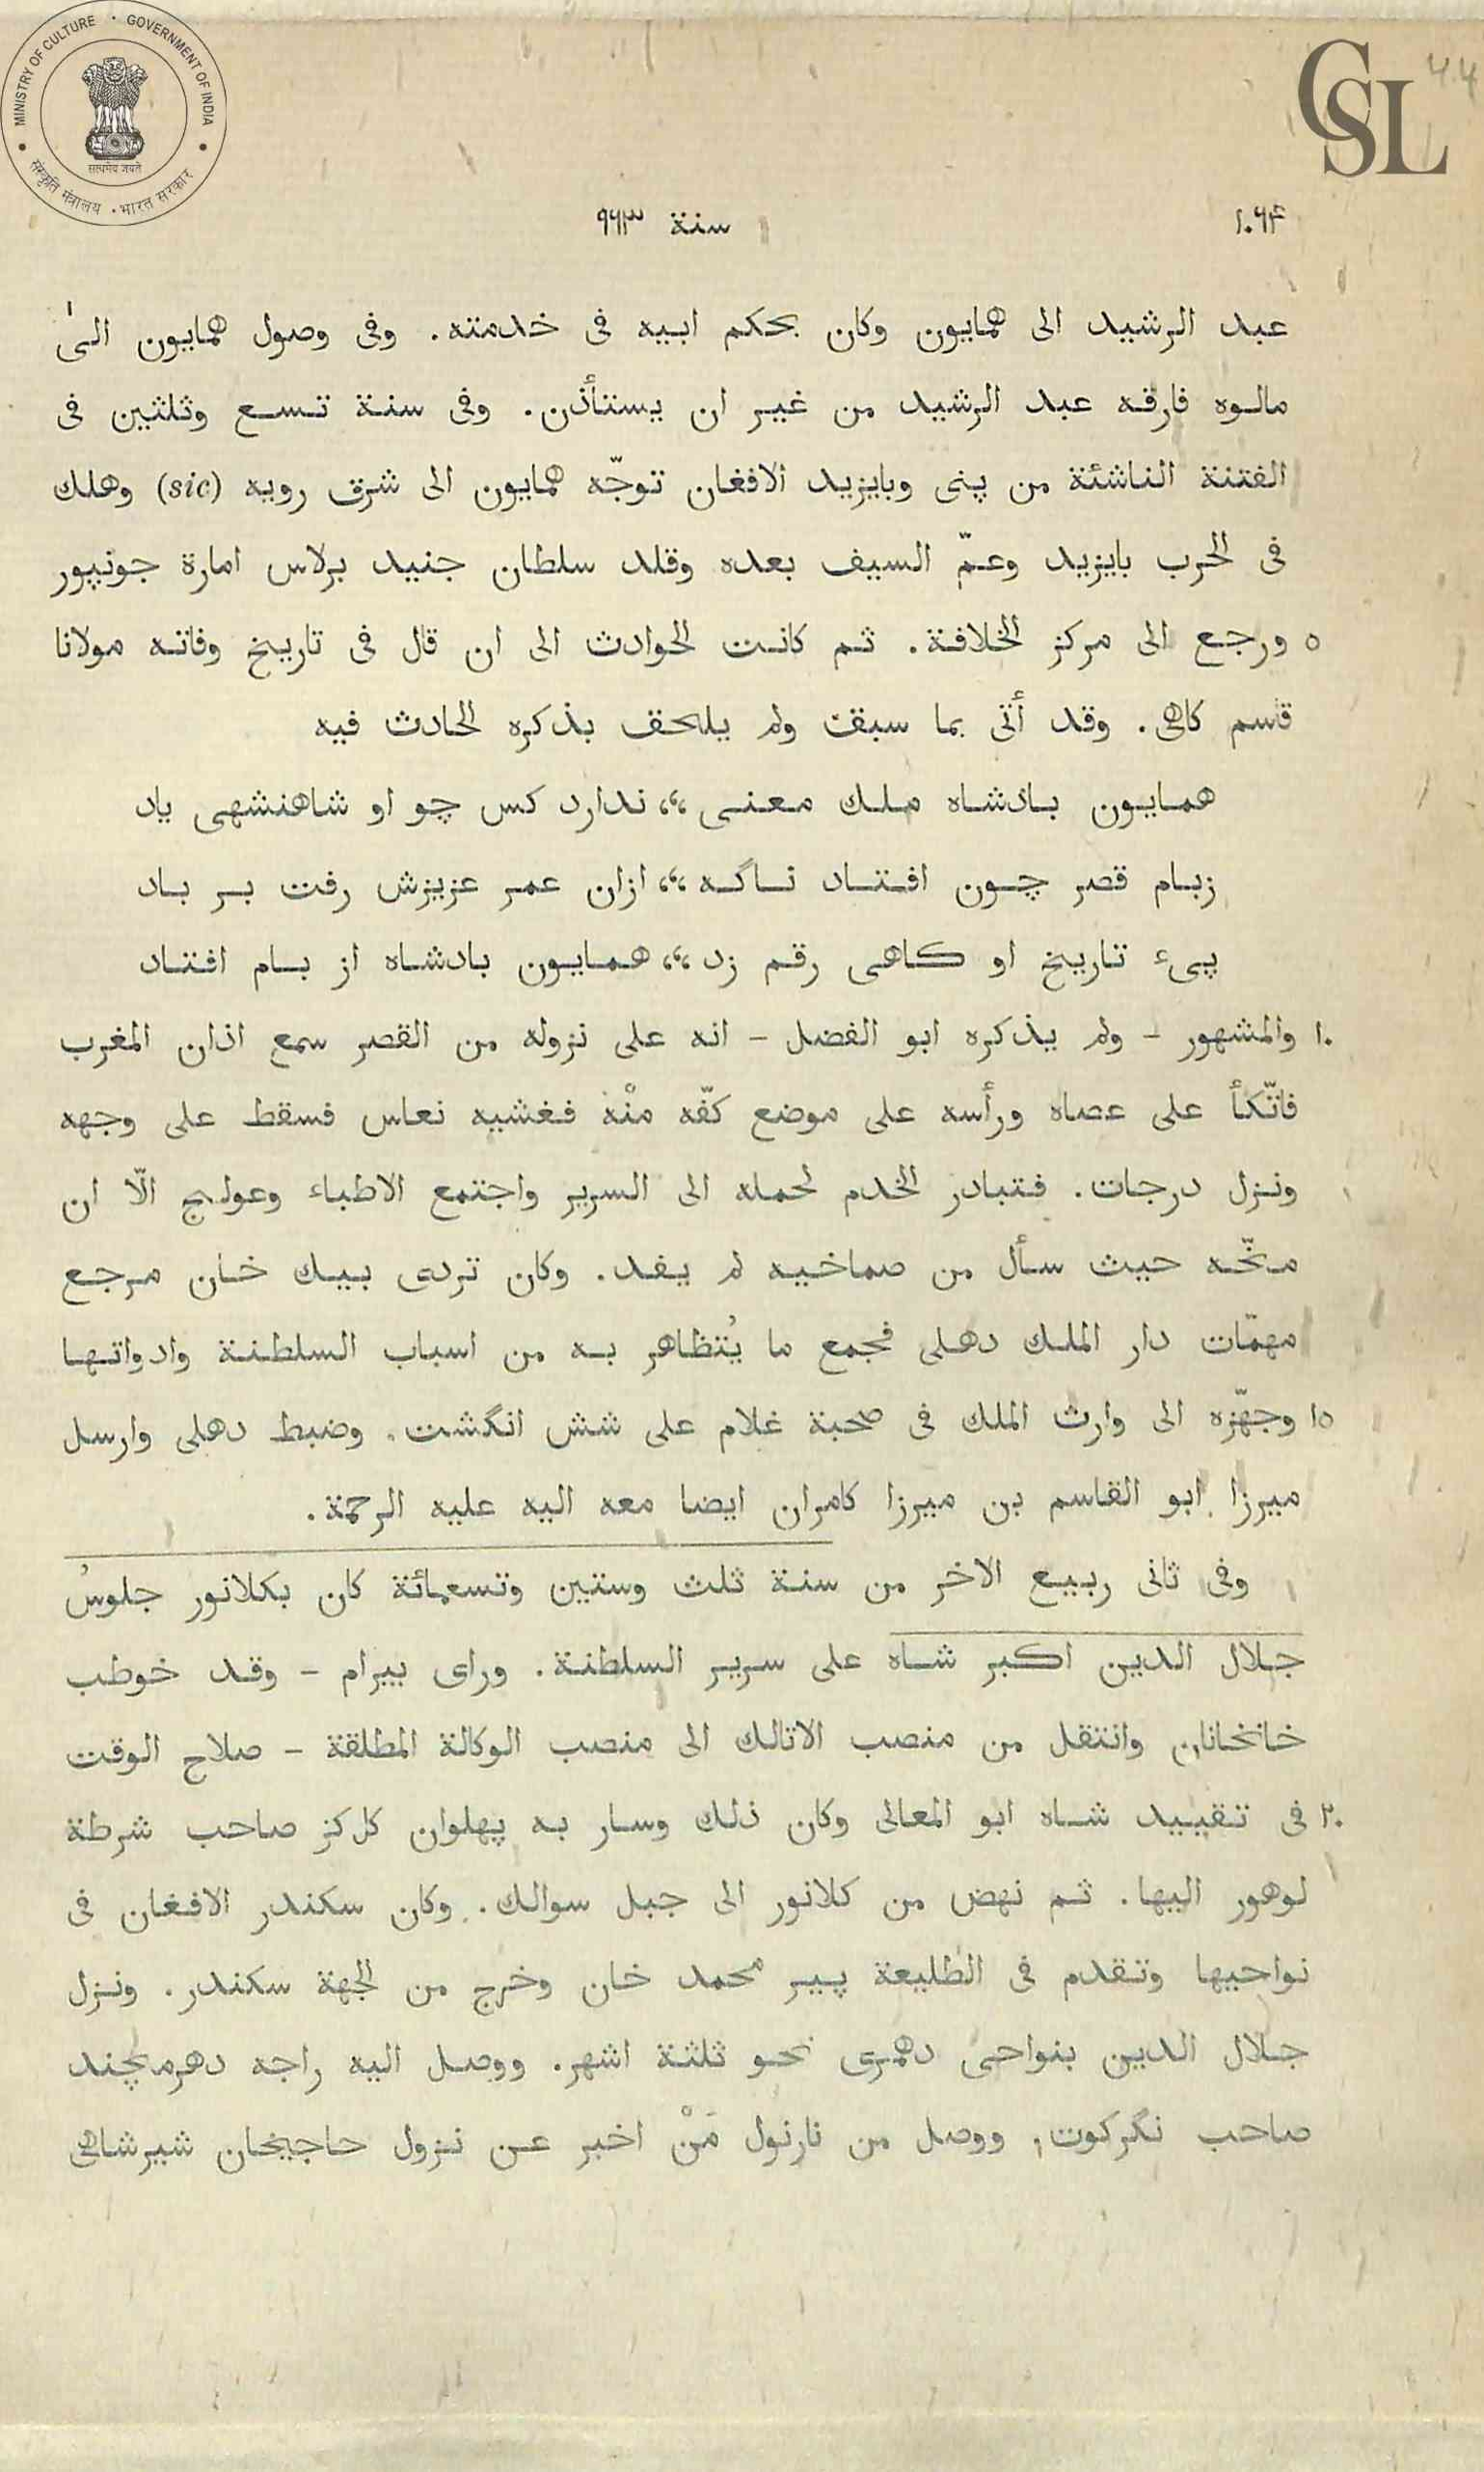 MINISTRY OF CULTURE · GOVERNMENT OF INDIA
संस्कृति मंत्रालय · भारत सरकार
सत्यमेव जयते
CSL
١٠٦۴ سنة ٩٦٣
عبد الرشيد الى همايون وكان بحكم ابيه فى خدمته. وفى وصول همايون الىٰ
مالوه فارقه عبد الرشيد من غير ان يستأذن. وفى سنة تسع وثلثين فى
الفتنة الناشئة من پنى وبايزيد الافغان توجّه همايون الى شرق رويه (sic) وهلك
فى الحرب بايزيد وعمّ السيف بعده وقلد سلطان جنيد برلاس امارة جونپور
٥ ورجع الى مركز الخلافة. ثم كانت الحوادث الى ان قال فى تاريخ وفاته مولانا
قاسم كاهى. وقد أتى بما سبق ولم يلحق بذكره الحادث فيه
همايون بادشاه ملك معنى ،، ندارد كس چو او شاهنشهى ياد
زبام قصر چون افتاد ناگه ،، ازان عمر عزيزش رفت بر باد
پىء تاريخ او كاهى رقم زد ،، همايون بادشاه از بام افتاد
١٠ والمشهور - ولم يذكره ابو الفضل - انه على نزوله من القصر سمع اذان المغرب
فاتّكأ على عصاه ورأسه على موضع كفّه منْه فغشيه نعاس فسقط على وجهه
ونزل درجات. فتبادر الخدم لحمله الى السرير واجتمع الاطباء وعولج الّا ان
مخّه حيث سأل من صماخيه لم يفد. وكان تردى بيك خان مرجع
مهمّات دار الملك دهلى فجمع ما يُتظاهر به من اسباب السلطنة وادواتها
١٥ وجهّزه الى وارث الملك فى صحبة غلام على شش انگشت. وضبط دهلى وارسل
ميرزا ابو القاسم بن ميرزا كامران ايضا معه اليه عليه الرحمة.
وفى ثانى ربيع الاخر من سنة ثلث وستين وتسعمائة كان بكلانور جلوسُ
جلال الدين اكبر شاه على سرير السلطنة. وراى بيرام - وقد خوطب
خانخانان وانتقل من منصب الاتالك الى منصب الوكالة المطلقة - صلاح الوقت
٢٠ فى تقييد شاه ابو المعالى وكان ذلك وسار به پهلوان كل كز صاحب شرطة
لوهور اليها. ثم نهض من كلانور الى جبل سوالك. وكان سكندر الافغان فى
نواحيها وتقدم فى الطليعة پير محمد خان وخرج من الجهة سكندر. ونزل
جلال الدين بنواحى دهمرى نحو ثلثة اشهر. ووصل اليه راجه دهرمچند
صاحب نگركوت, ووصل من نارنول مَنْ اخبر عن نزول حاجيخان شيرشاهى